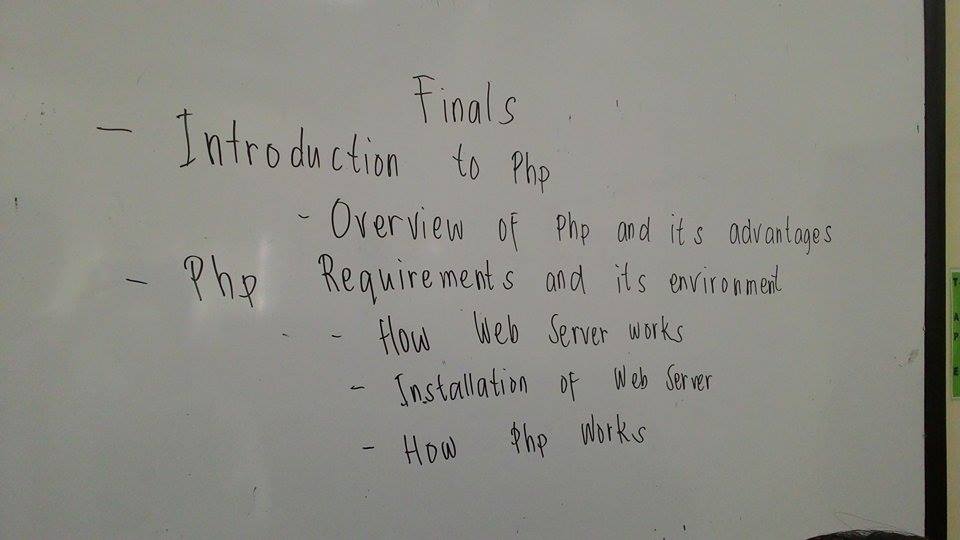 Finals
- Introduction to Php
- Overview of Php and its advantages
- Php Requirements and its environment
- How Web Server works
- Installation of Web Server
- How Php Works
TAPE